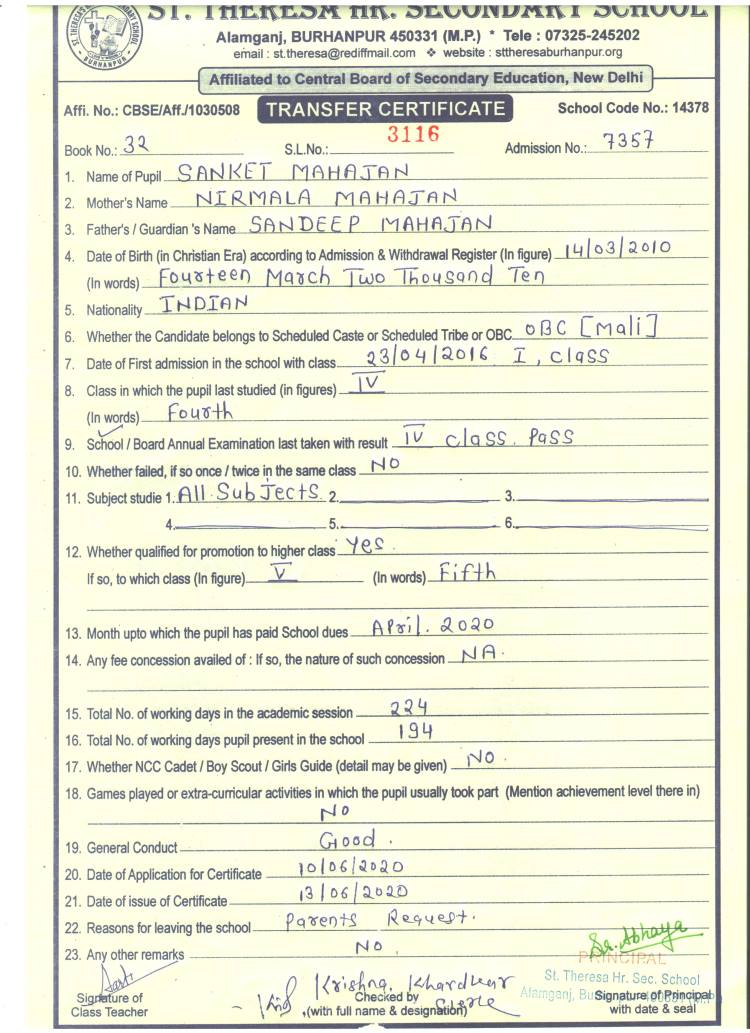 ST. THERESA HR. SECONDARY SCHOOL
Alamganj, BURHANPUR 450331 (M.P.) * Tele : 07325-245202
email : st.theresa@rediffmail.com ❖ website : sttheresaburhanpur.org
Affiliated to Central Board of Secondary Education, New Delhi
Affi. No.: CBSE/Aff./1030508 TRANSFER CERTIFICATE School Code No.: 14378
Book No.: 32 S.L.No.: 3116 Admission No.: 7357
1. Name of Pupil SANKET MAHAJAN
2. Mother's Name NIRMALA MAHAJAN
3. Father's / Guardian 's Name SANDEEP MAHAJAN
4. Date of Birth (in Christian Era) according to Admission & Withdrawal Register (In figure) 14/03/2010
(In words) Fourteen March Two Thousand Ten
5. Nationality INDIAN
6. Whether the Candidate belongs to Scheduled Caste or Scheduled Tribe or OBC OBC [Mali]
7. Date of First admission in the school with class 23/04/2016 I, class
8. Class in which the pupil last studied (in figures) IV
(In words) Fourth
9. School / Board Annual Examination last taken with result IV class. Pass
10. Whether failed, if so once / twice in the same class NO
11. Subject studie 1. All Subjects 2. 3.
4. 5. 6.
12. Whether qualified for promotion to higher class Yes.
If so, to which class (In figure) V (In words) Fifth
13. Month upto which the pupil has paid School dues April. 2020
14. Any fee concession availed of : If so, the nature of such concession NA.
15. Total No. of working days in the academic session 224
16. Total No. of working days pupil present in the school 194
17. Whether NCC Cadet / Boy Scout / Girls Guide (detail may be given) NO.
18. Games played or extra-curricular activities in which the pupil usually took part (Mention achievement level there in)
NO
19. General Conduct Good.
20. Date of Application for Certificate 10/06/2020
21. Date of issue of Certificate 13/06/2020
22. Reasons for leaving the school Parents Request.
23. Any other remarks NO.
Sr. Abhaya
PRINCIPAL
St. Theresa Hr. Sec. School
Krishna Khardkar
Signature of Checked by Signature of Principal
Class Teacher (with full name & designation) with date & seal